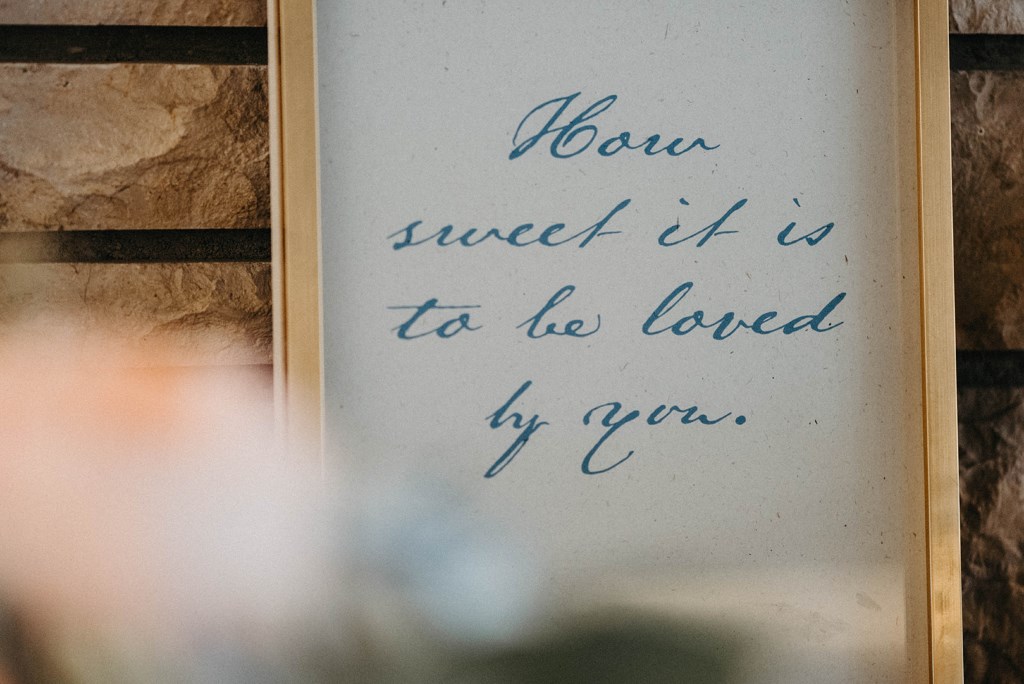 How
sweet it is
to be loved
by you.